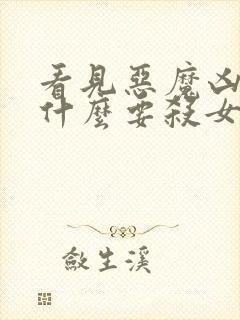 看見惡魔凶
什麼要殺女
斂生溪